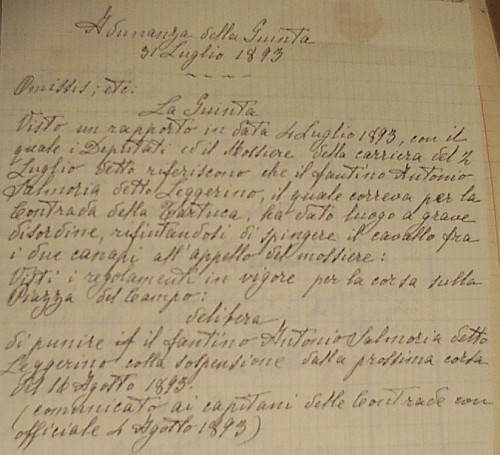 Adunanza della Giunta
31 Luglio 1893
Omissis, etc:
La Giunta
Visto un rapporto in data 4 Luglio 1893, con il
quale i Deputati ed il Mossiere della carriera del 2
Luglio detto riferiscono che il fantino Antonio
Salmoria detto Leggerino, il quale correva per la
Contrada della Tartuca, ha dato luogo a grave
disordine, rifiutandosi di spingere il cavallo fra
i due canapi all'appello del mossiere:
Visti i regolamenti in vigore per la corsa sulla
Piazza del Campo:
delibera,
di punire il fantino Antonio Salmoria detto
Leggerino colla sospensione dalla prossima corsa
del 16 Agosto 1893.
(comunicato ai capitani delle Contrade con
officiale 4 Agosto 1893)